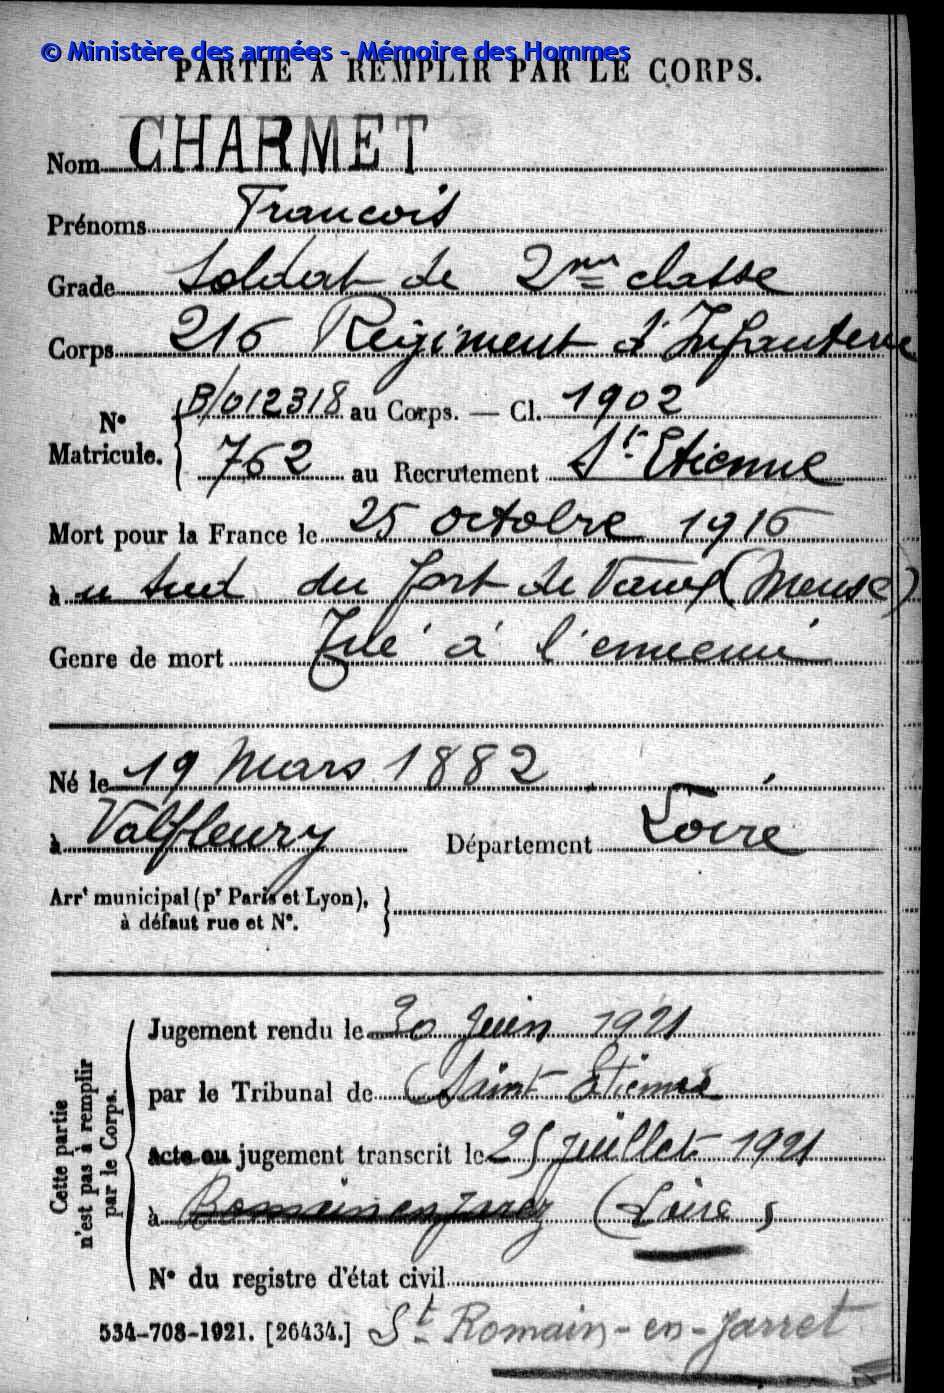 © Ministère des armées - Mémoire des Hommes
PARTIE A REMPLIR PAR LE CORPS.
Nom CHARMET
Prénoms Francois
Grade Soldat de 2me classe
Corps 216 Régiment d'Infanterie
N° Matricule. B/012318 au Corps. — Cl. 1902
762 au Recrutement St Etienne
Mort pour la France le 25 octobre 1916
à u Sud du fort de Vaux (Meuse)
Genre de mort Tué à l'ennemi
Né le 19 Mars 1882
à Valfleury Département Loire
Arrt municipal (pr Paris et Lyon),
à défaut rue et N°.
Cette partie
n'est pas à remplir
par le Corps.
Jugement rendu le 30 Juin 1921
par le Tribunal de Saint Etienne
Acte ou jugement transcrit le 25 juillet 1921
à Romain en Jarez (Loire)
N° du registre d'état civil
534-708-1921. [26434.] St Romain-en-Jarret